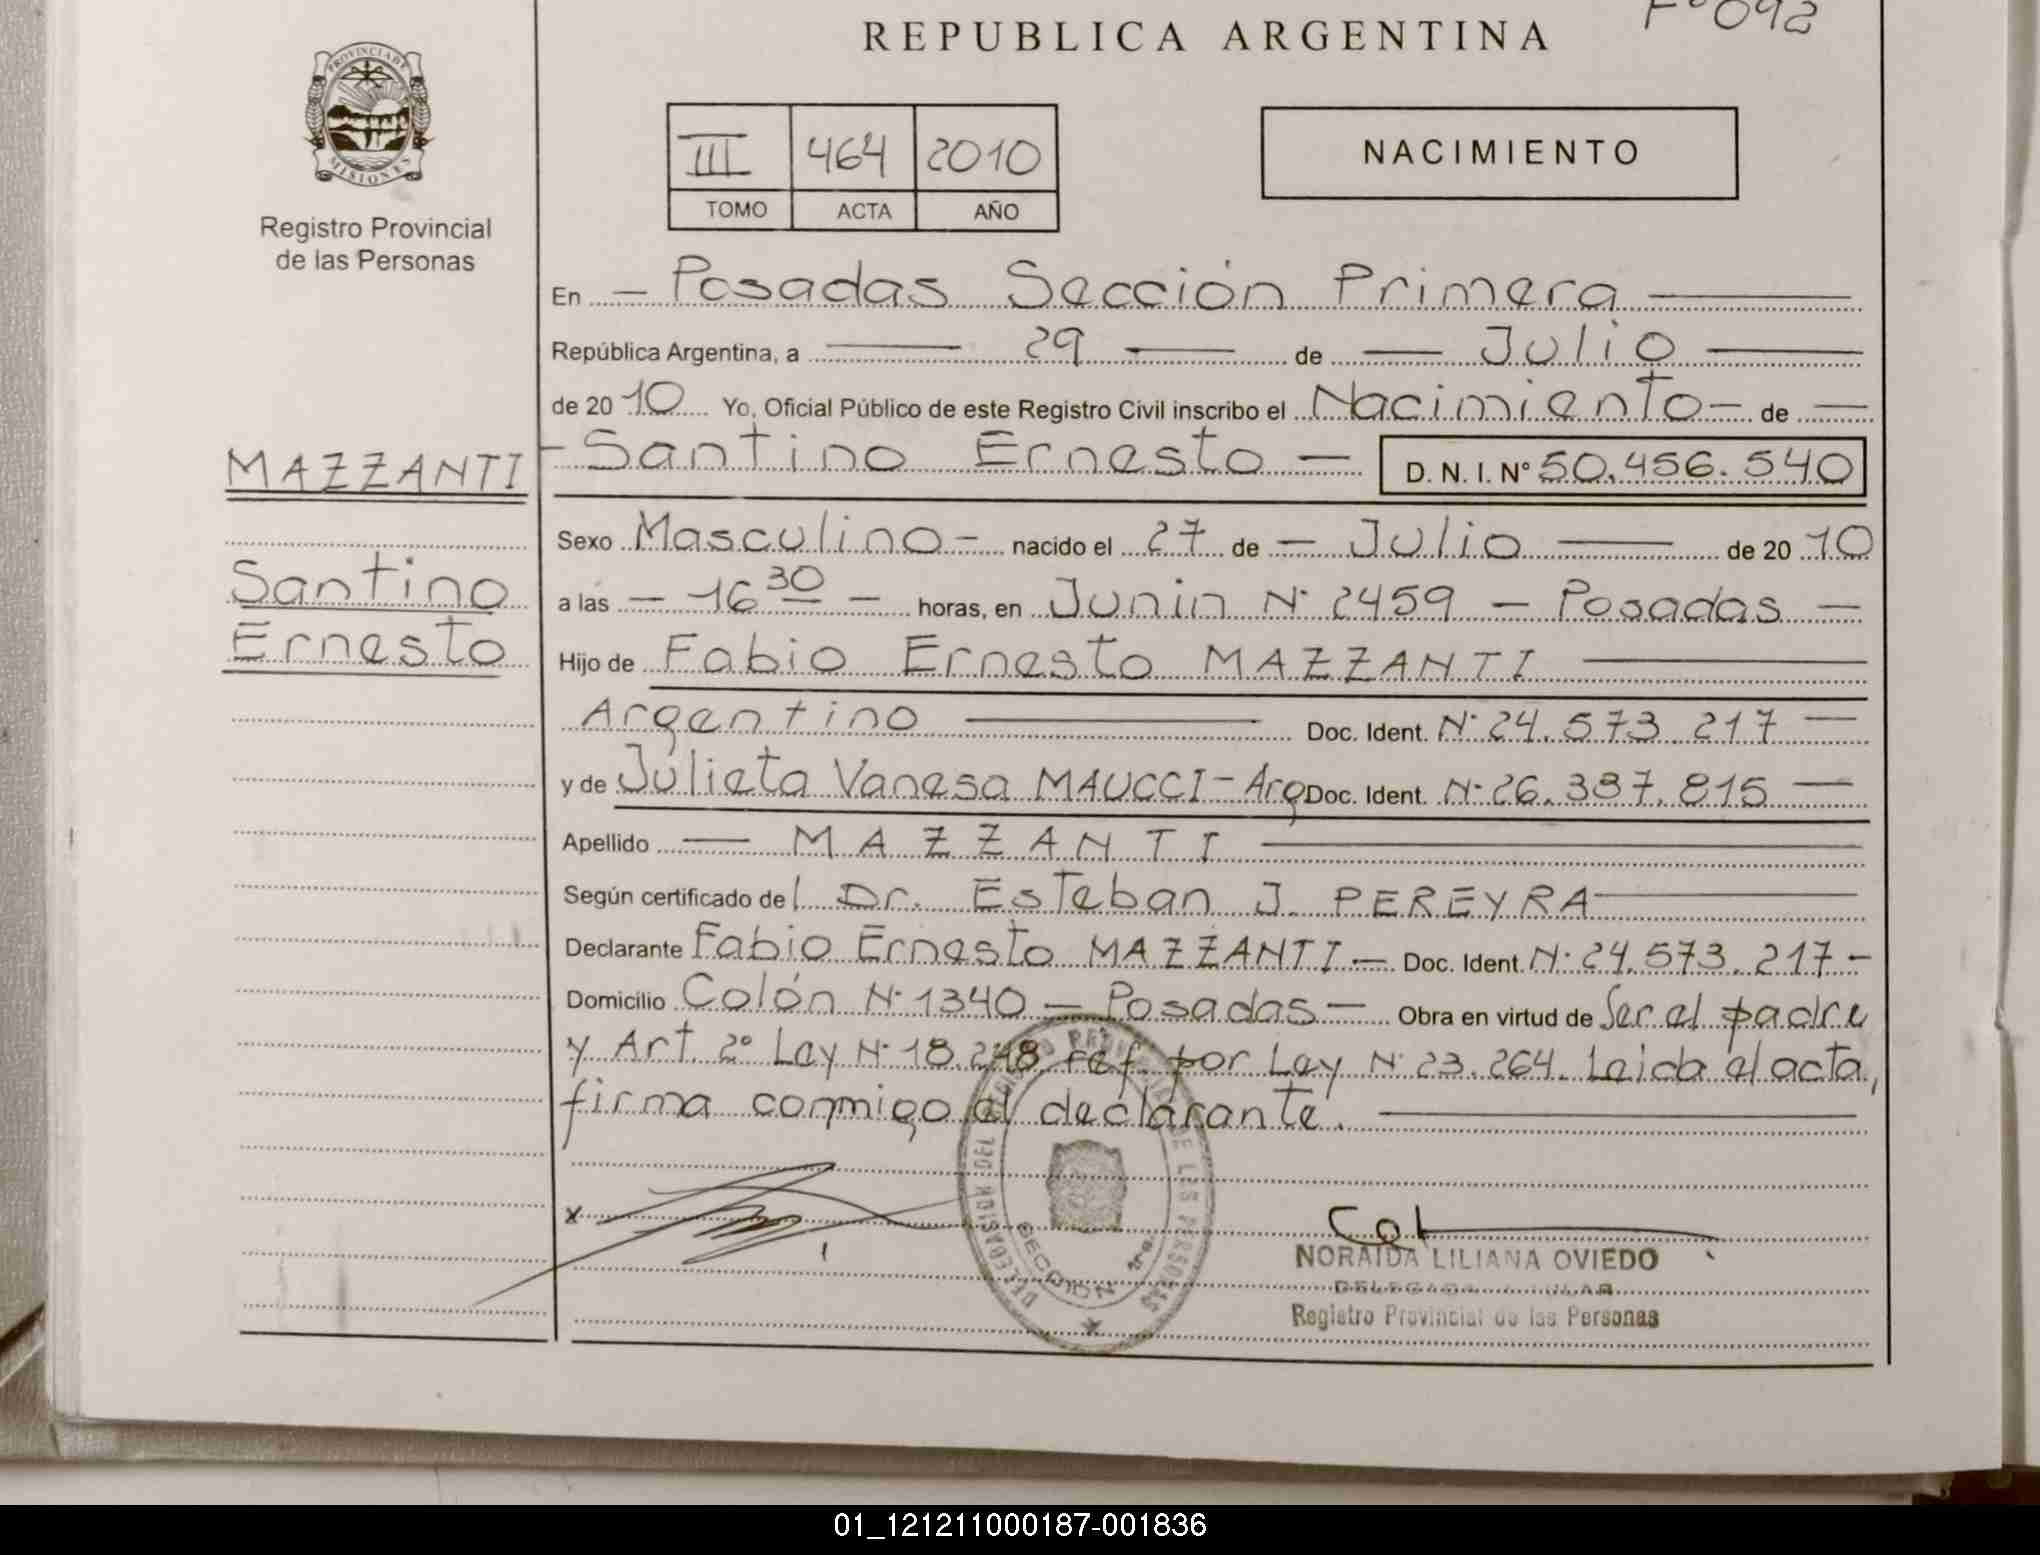 REPUBLICA ARGENTINA
Fº 092
PROVINCIA DE MISIONES
III 464 2010
TOMO ACTA AÑO
NACIMIENTO
Registro Provincial
de las Personas
En - Posadas Sección Primera
República Argentina, a 29 de Julio
de 20 10 Yo, Oficial Público de este Registro Civil inscribo el Nacimiento - de
MAZZANTI
- Santino Ernesto - D. N. I. Nº 50.456.540
Sexo Masculino - nacido el 27 de - Julio de 20 10
Santino
a las - 16 30 - horas, en Junin Nº 2459 - Posadas -
Ernesto
Hijo de Fabio Ernesto MAZZANTI
Argentino Doc. Ident. Nº 24.573.217 -
y de Julieta Vanesa MAUCCI - Arg Doc. Ident. Nº 26.387.815 -
Apellido - MAZZANTI
Según certificado del Dr. Esteban J. PEREYRA
Declarante Fabio Ernesto MAZZANTI - Doc. Ident. Nº 24.573.217 -
Domicilio Colón Nº 1340 - Posadas - Obra en virtud de Ser el padre
y Art. 2º Ley Nº 18.248 ref. por Ley Nº 23.264. Leida el acta,
firma conmigo el declarante.
DELEGACION DEL REGISTRO PROVINCIAL DE LAS PERSONAS
SECCION 1ra.
x
NORAIDA LILIANA OVIEDO
DELEGADA TITULAR
Registro Provincial de las Personas
01_121211000187-001836